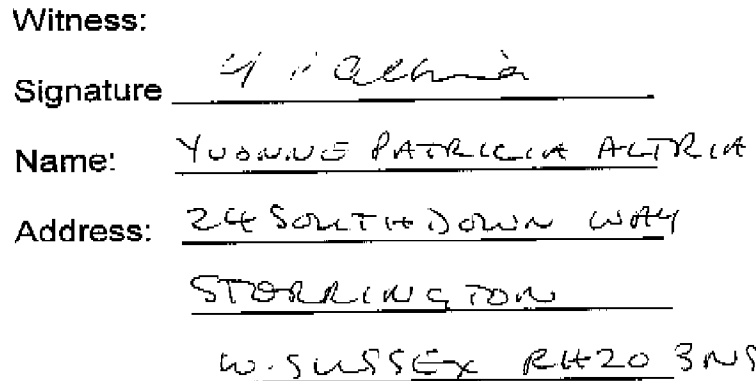 Witness:
Signature
Name: YVONNE PATRICIA ALTRIA
Address: 24 SOUTHDOWN WAY
STORRINGTON
W. SUSSEX RH20 3NS